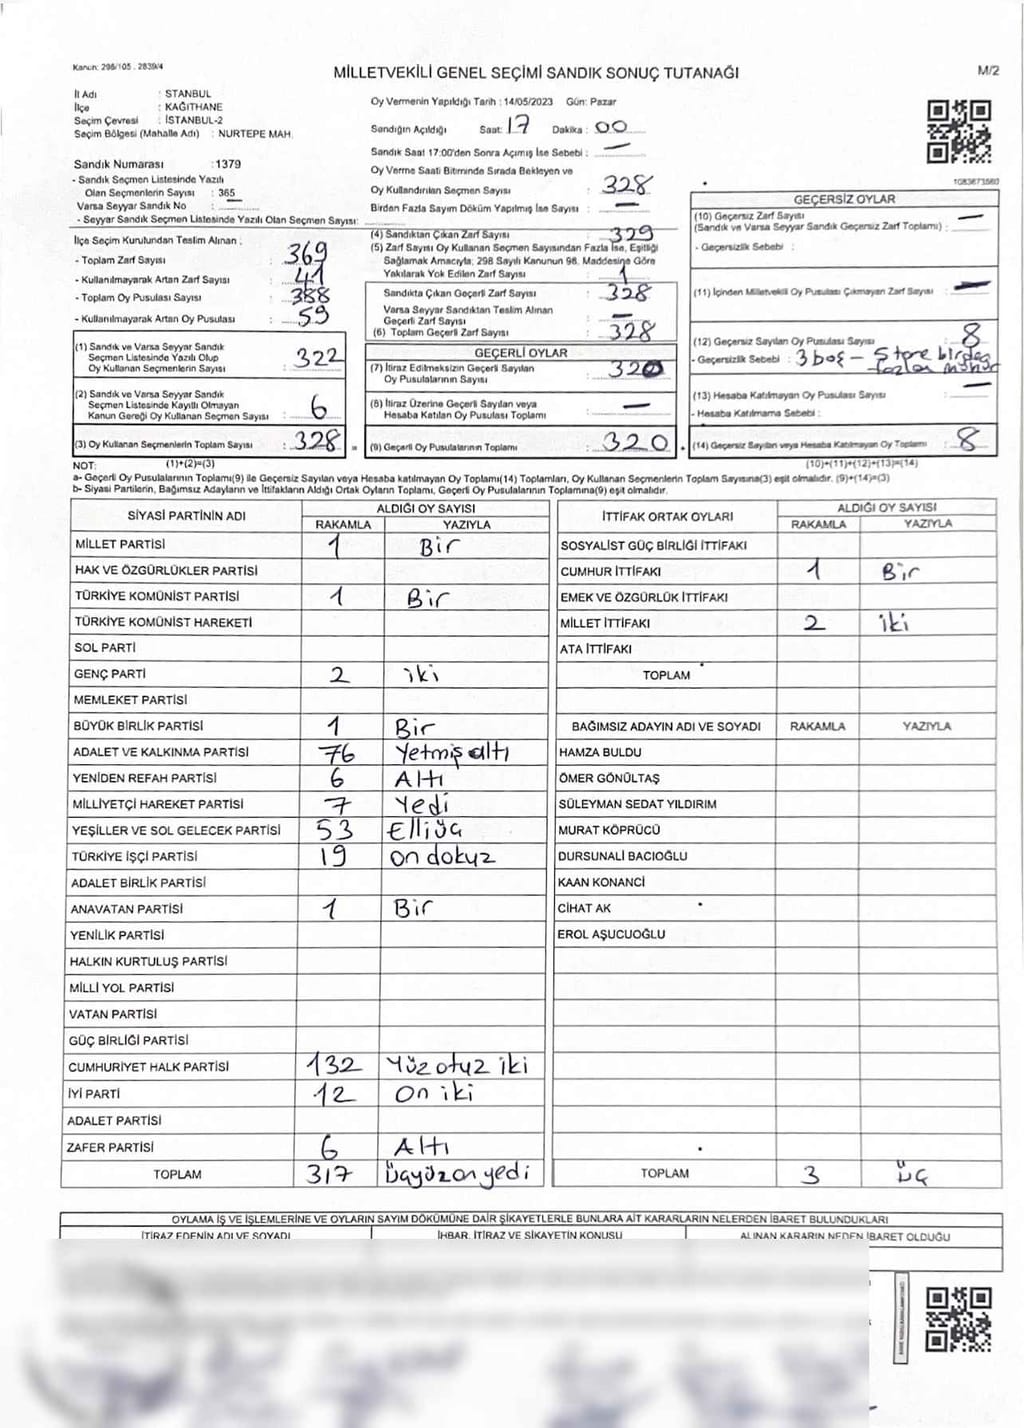 Kanun: 298/105 . 2839/4
MİLLETVEKİLİ GENEL SEÇİMİ SANDIK SONUÇ TUTANAĞI
M/2
İl Adı : STANBUL
İlçe : KAĞITHANE
Seçim Çevresi : İSTANBUL-2
Seçim Bölgesi (Mahalle Adı) : NURTEPE MAH.
Sandık Numarası : 1379
- Sandık Seçmen Listesinde Yazılı
Olan Seçmenlerin Sayısı : 365
Varsa Seyyar Sandık No : —
- Seyyar Sandık Seçmen Listesinde Yazılı Olan Seçmen Sayısı:
Oy Vermenin Yapıldığı Tarih : 14/05/2023 Gün: Pazar
Sandığın Açıldığı Saat: 17 Dakika : 00
Sandık Saat 17:00'den Sonra Açımış İse Sebebi : —
Oy Verme Saati Bitiminde Sırada Bekleyen ve
Oy Kullandırılan Seçmen Sayısı : 328
Birden Fazla Sayım Döküm Yapılmış İse Sayısı : —
1083673560
İlçe Seçim Kurulundan Teslim Alınan :
- Toplam Zarf Sayısı : 369
- Kullanılmayarak Artan Zarf Sayısı : 41
- Toplam Oy Pusulası Sayısı : 388
- Kullanılmayarak Artan Oy Pusulası : 59
(1) Sandık ve Varsa Seyyar Sandık
Seçmen Listesinde Yazılı Olup
Oy Kullanan Seçmenlerin Sayısı : 322
(2) Sandık ve Varsa Seyyar Sandık
Seçmen Listesinde Kayıtlı Olmayan
Kanun Gereği Oy Kullanan Seçmen Sayısı : 6
(3) Oy Kullanan Seçmenlerin Toplam Sayısı : 328 =
(4) Sandıktan Çıkan Zarf Sayısı : 329
(5) Zarf Sayısı Oy Kullanan Seçmen Sayısından Fazla İse, Eşitliği
Sağlamak Amacıyla; 298 Sayılı Kanunun 98. Maddesine Göre
Yakılarak Yok Edilen Zarf Sayısı : 1
Sandıkta Çıkan Geçerli Zarf Sayısı : 328
Varsa Seyyar Sandıktan Teslim Alınan
Geçerli Zarf Sayısı : —
(6) Toplam Geçerli Zarf Sayısı : 328
GEÇERLİ OYLAR
(7) İtiraz Edilmeksizin Geçerli Sayılan
Oy Pusulalarının Sayısı : 320
(8) İtiraz Üzerine Geçerli Sayılan veya
Hesaba Katılan Oy Pusulası Toplamı : —
(9) Geçerli Oy Pusulalarının Toplamı : 320 +
GEÇERSİZ OYLAR
(10) Geçersiz Zarf Sayısı
(Sandık ve Varsa Seyyar Sandık Geçersiz Zarf Toplamı) : —
- Geçersizlik Sebebi :
(11) İçinden Milletvekili Oy Pusulası Çıkmayan Zarf Sayısı : —
(12) Geçersiz Sayılan Oy Pusulası Sayısı : 8
- Geçersizlik Sebebi : 3 boş –
(13) Hesaba Katılmayan Oy Pusulası Sayısı : —
- Hesaba Katılmama Sebebi :
(14) Geçersiz Sayılan veya Hesaba Katılmayan Oy Toplamı : 8
NOT: (1)+(2)=(3) (10)+(11)+(12)+(13)=(14)
a- Geçerli Oy Pusulalarının Toplamı(9) ile Geçersiz Sayılan veya Hesaba katılmayan Oy Toplamı(14) Toplamları, Oy Kullanan Seçmenlerin Toplam Sayısına(3) eşit olmalıdır. (9)+(14)=(3)
b- Siyasi Partilerin, Bağımsız Adayların ve İttifakların Aldığı Ortak Oyların Toplamı, Geçerli Oy Pusulalarının Toplamına(9) eşit olmalıdır.
SİYASİ PARTİNİN ADI ALDIĞI OY SAYISI
RAKAMLA YAZIYLA
MİLLET PARTİSİ 1 Bir
HAK VE ÖZGÜRLÜKLER PARTİSİ
TÜRKİYE KOMÜNİST PARTİSİ 1 Bir
TÜRKİYE KOMÜNİST HAREKETİ
SOL PARTİ
GENÇ PARTİ 2 iki
MEMLEKET PARTİSİ
BÜYÜK BİRLİK PARTİSİ 1 Bir
ADALET VE KALKINMA PARTİSİ 76 Yetmiş altı
YENİDEN REFAH PARTİSİ 6 Altı
MİLLİYETÇİ HAREKET PARTİSİ 7 Yedi
YEŞİLLER VE SOL GELECEK PARTİSİ 53 Elliüç
TÜRKİYE İŞÇİ PARTİSİ 19 on dokuz
ADALET BİRLİK PARTİSİ
ANAVATAN PARTİSİ 1 Bir
YENİLİK PARTİSİ
HALKIN KURTULUŞ PARTİSİ
MİLLİ YOL PARTİSİ
VATAN PARTİSİ
GÜÇ BİRLİĞİ PARTİSİ
CUMHURİYET HALK PARTİSİ 132 Yüz otuz iki
İYİ PARTİ 12 On iki
ADALET PARTİSİ
ZAFER PARTİSİ 6 Altı
TOPLAM 317 Üçyüz on yedi
İTTİFAK ORTAK OYLARI ALDIĞI OY SAYISI
RAKAMLA YAZIYLA
SOSYALİST GÜÇ BİRLİĞİ İTTİFAKI
CUMHUR İTTİFAKI 1 Bir
EMEK VE ÖZGÜRLÜK İTTİFAKI
MİLLET İTTİFAKI 2 iki
ATA İTTİFAKI
TOPLAM
BAĞIMSIZ ADAYIN ADI VE SOYADI RAKAMLA YAZIYLA
HAMZA BULDU
ÖMER GÖNÜLTAŞ
SÜLEYMAN SEDAT YILDIRIM
MURAT KÖPRÜCÜ
DURSUNALİ BACIOĞLU
KAAN KONANCİ
CİHAT AK
EROL AŞUCUOĞLU
TOPLAM 3 Üç
OYLAMA İŞ VE İŞLEMLERİNE VE OYLARIN SAYIM DÖKÜMÜNE DAİR ŞİKAYETLERLE BUNLARA AİT KARARLARIN NELERDEN İBARET BULUNDUKLARI
İTİRAZ EDENİN ADI VE SOYADI İHBAR, İTİRAZ VE ŞİKAYETİN KONUSU ALINAN KARARIN NEDEN İBARET OLDUĞU